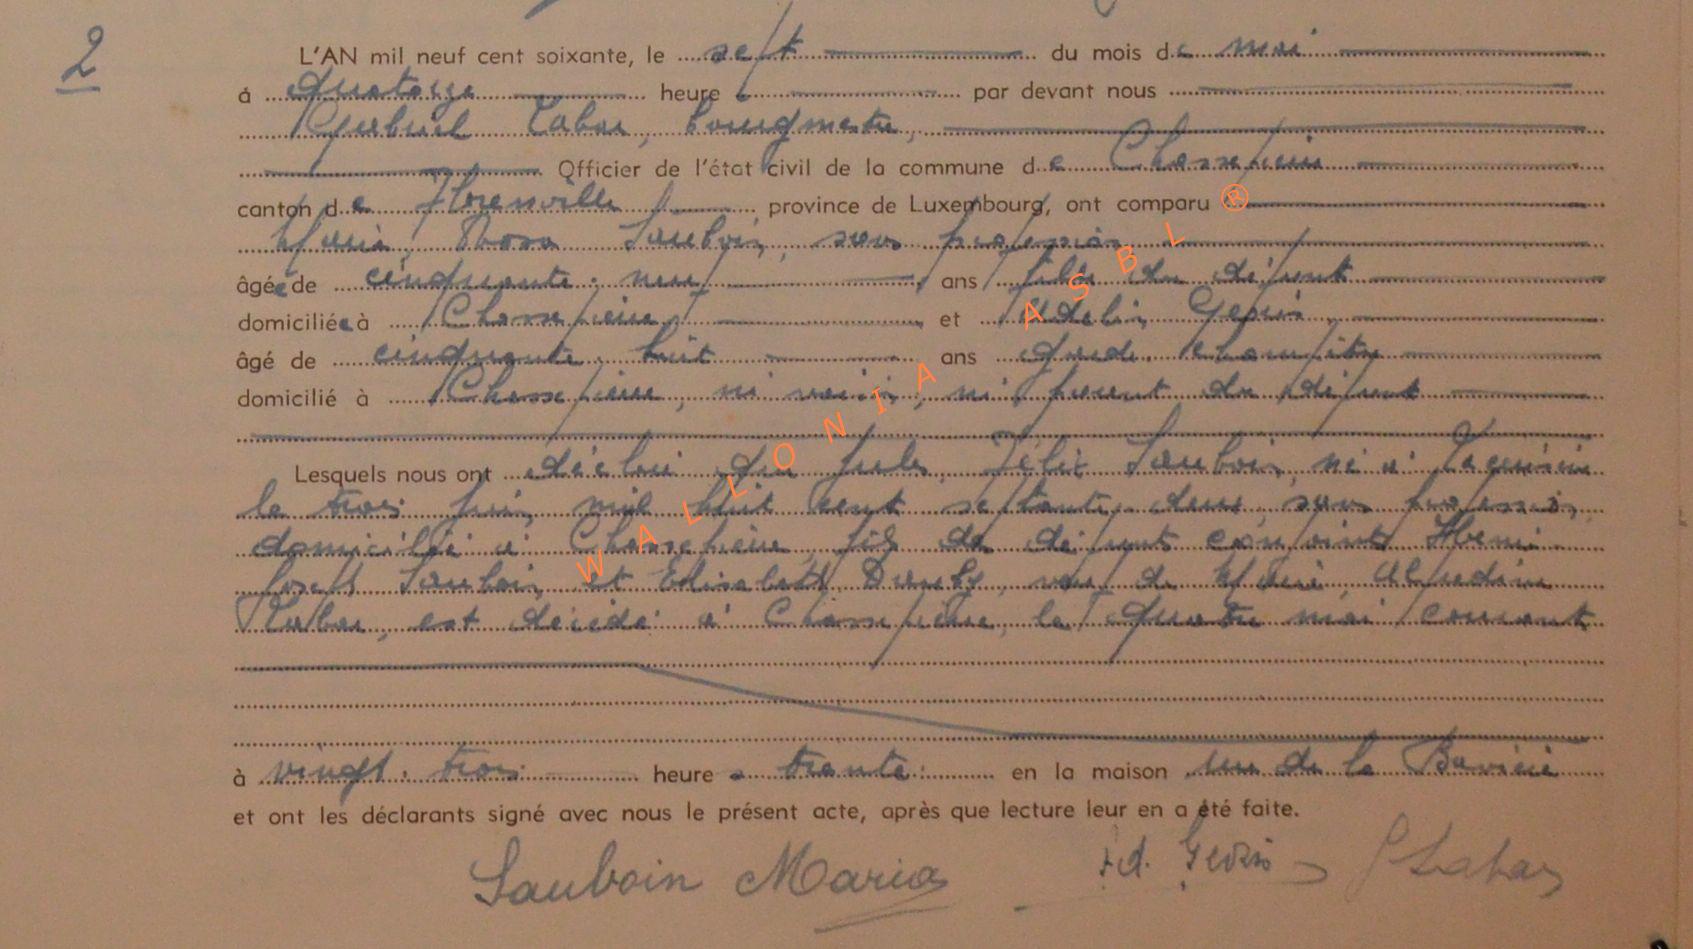 2
L'AN mil neuf cent soixante, le sept du mois de mai
à quatorze heure s par devant nous
Labar, bourgmestre,
Officier de l'état civil de la commune de Chassepierre
canton de Florenville province de Luxembourg, ont comparu ®
Maria, Rosa Sauboin, sans profession
âgée de cinquante-neuf ans fille du défunt
domiciliée à Chassepierre et Adelin Gérin,
âgé de cinquante-huit ans garde-champêtre
domicilié à Chassepierre, ni voisin, ni parent du défunt
Lesquels nous ont déclaré que Jules, Félix Sauboin, né à
le trois juin mil huit cent septante-deux, sans profession,
domicilié à Chassepierre, fils de défunts conjoints Henri
Joseph Sauboin et Elisabeth Dauby, veuf de Marie,
est décédé à Chassepierre, le quatre mai courant
à vingt-trois heure s trente en la maison rue de la
et ont les déclarants signé avec nous le présent acte, après que lecture leur en a été faite.
Sauboin Maria Ad. Gérin Labar
WALLONIA ASBL